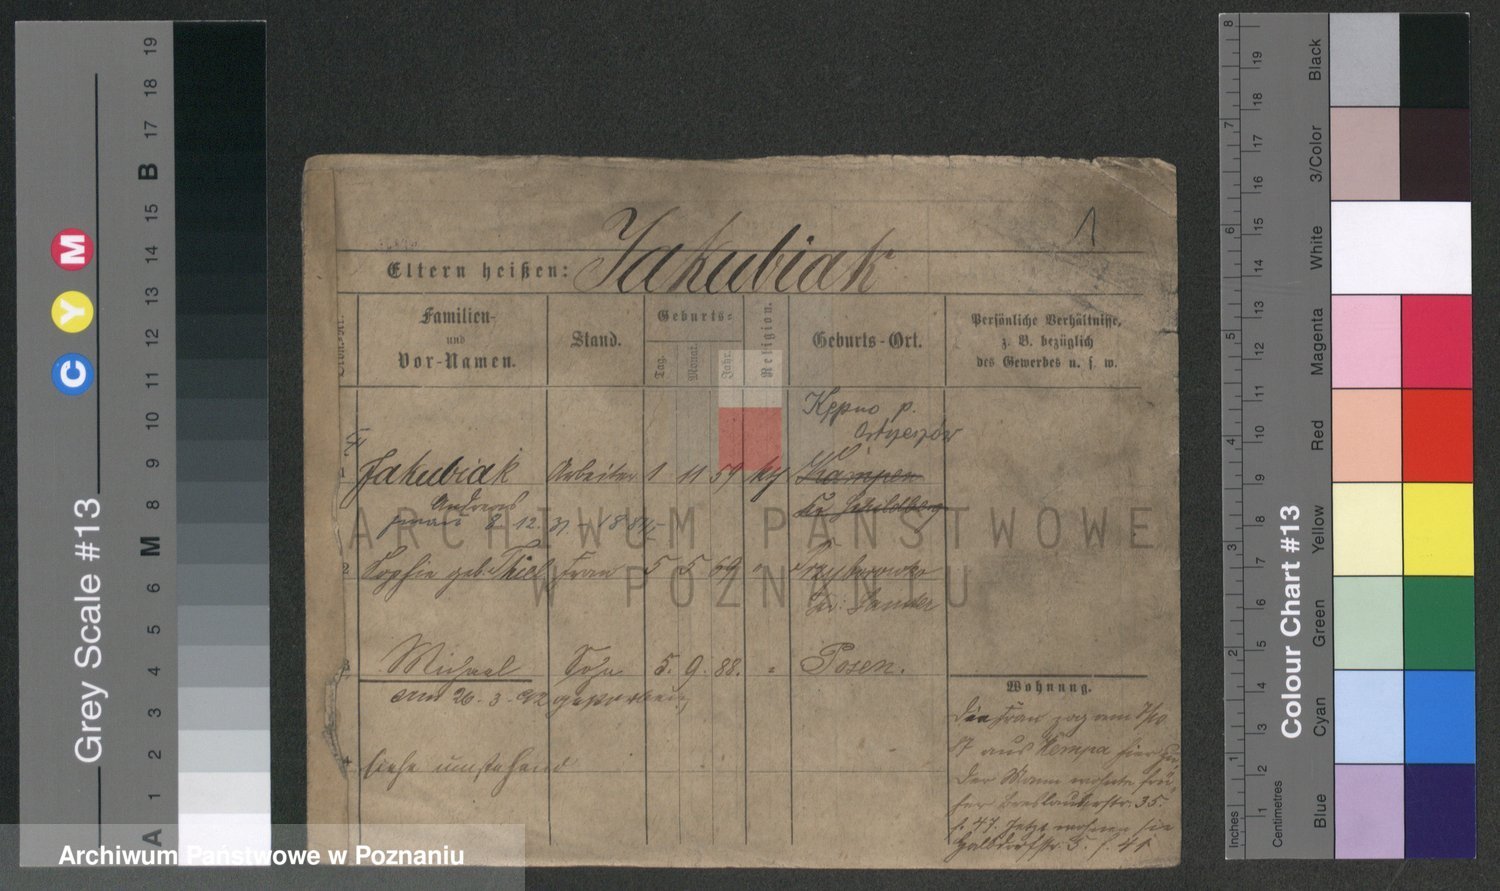 Jakubiak
1
Eltern heißen:
Familien-
und
Vor-Namen.
Stand.
Geburts-
Tag.
Monat.
Jahr.
Religion.
Geburts-Ort.
Persönliche Verhältnisse,
z. B. bezüglich
des Gewerbes u. s. w.
Kępno p.
Ostrzeszów
1 Jakubiak Arbeiter 1 11 59 kth Kempen
Andreas Kr Schildberg
8. 12. 31
2 Sophie geb. Thiel Frau 5 5 69 "
3 Michael Sohn 5. 9. 88. " Posen.
am 26. 3. 92 gestorben,
Siehe umstehend
Wohnung.
Die Frau zog am 7/10
87 aus Kempa hier zu,
Der Mann wohnte frü-
her Breslauerstr. 35.
s. 47. Jetzt wohnen sie
Halbdorfstr. 5. s. 41
ARCHIWUM PAŃSTWOWE
W POZNANIU
Archiwum Państwowe w Poznaniu
Grey Scale #13
C Y M
A 1 2 3 4 5 6 M 8 9 10 11 12 13 14 15 B 17 18 19
Colour Chart #13
Blue
Cyan
Green
Yellow
Red
Magenta
White
3/Color
Black
Inches 1 2 3 4 5 6 7 8
Centimetres 1 2 3 4 5 6 7 8 9 10 11 12 13 14 15 16 17 18 19